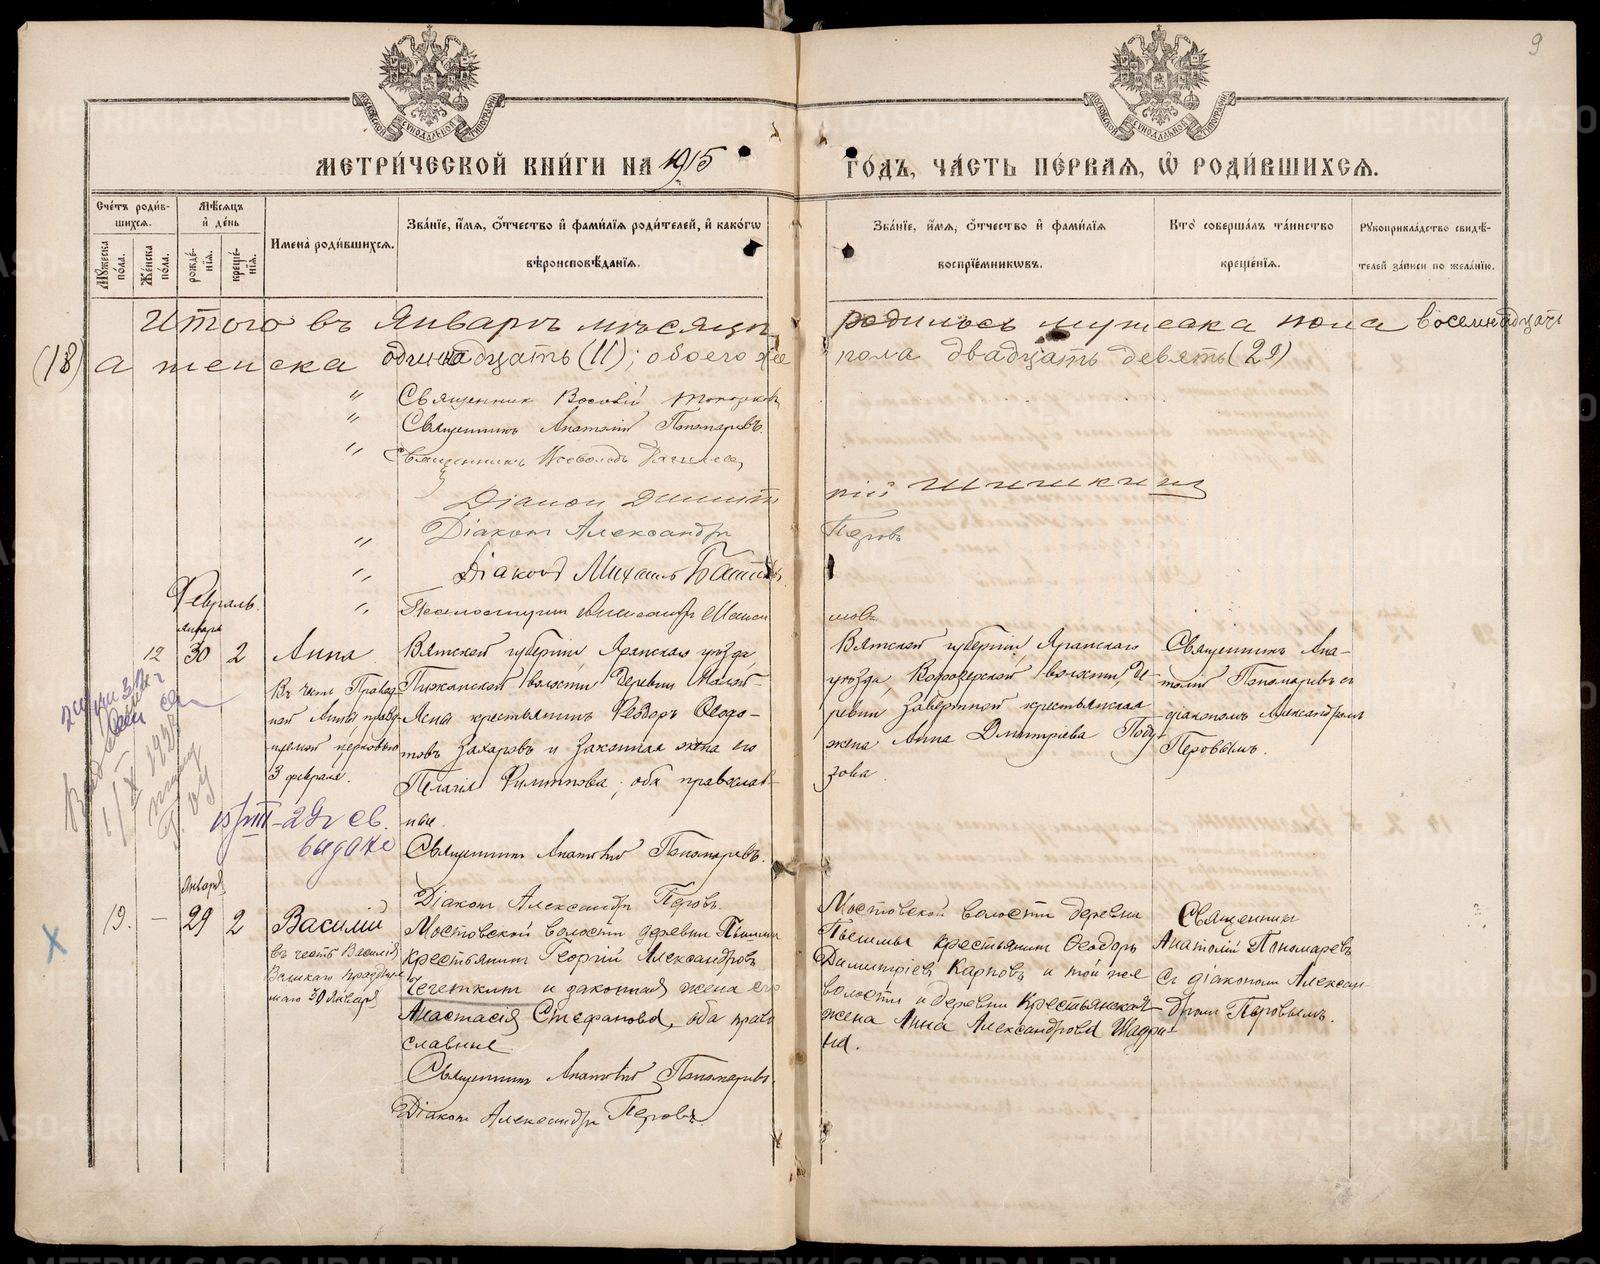 9
МЕТРИ́ЧЕСКОЙ КНИ́ГИ НА 1915
ГОДЪ, ЧА́СТЬ ПЕ́РВАЯ, Ѡ РОДИ́ВШИХСЯ.
Сче́тъ роди́вшихся.
Мѣ́сяцъ и́ де́нь
Му́жеска по́ла.
Же́нска по́ла.
рожде́нїя.
креще́нїя.
И́мена̀ роди́вшихся.
Зва́нїе, и́мя, о́тчество и́ фами́лїя роди́телей, и́ како́гѡ
вѣроисповѣ́данїя.
Зва́нїе, и́мя, о́тчество и́ фами́лїя
воспрїе́мникѡвъ.
Кто̀ соверша́лъ та́инство
креще́нїя.
Рукоприкла́дство свидѣ́-
телей за́писи по жела́нїю.
Итого въ Январѣ мѣсяцѣ родилось мужеска пола восемнадцать
(18) а женска одиннадцать (11); обоего же пола двадцать девять (29)
Священник
Священникъ Анатолій Пономаревъ.
Священникъ Всеволодъ
Діакон Димитрій Шишкинъ
Діаконъ Александръ Перовъ
Діаконъ Михаилъ
Псаломщикъ Александръ
Февраль.
Января
12 30 2 Анна
Въ честь Правед-
ной Анны празд-
церковью
3 февраля.
Вятской губерніи, Яранскаго уѣзда,
Пижанской волости деревни
крестьянинъ Ѳеодоръ
Захаровъ и законная жена его
Пелагія Филиппова; оба православ-
ные.
Священникъ Анатолій Пономаревъ.
Діаконъ Александръ Перовъ.
Вятской губерніи, Яранскаго
уѣзда, волости, де-
ревни крестьянская
жена Анна Дмитріева
зова.
Священникъ Ана-
толій Пономаревъ съ
діакономъ Александромъ
Перовымъ.
1927
15/VIII-29г св.
выдано
Января
19. – 29 2 Василій
въ честь Василія
Великаго
30 Января
Мостовской волости деревни Пышмы
крестьянинъ Георгій Александровъ
Чечеткинъ и законная жена его
Анастасія Стефанова, оба право
славные
Священникъ Анатолій Пономаревъ.
Діаконъ Александръ Перовъ
Мостовской волости деревни
Пышмы крестьянинъ Ѳеодоръ
Димитріевъ Карповъ и той же
волости и деревни Крестьянская
жена Анна Александрова Шадри-
на.
Священникъ
Анатолій Пономаревъ
съ діакономъ Алексан-
дромъ Перовымъ.
METRIKI.GASO-URAL.RU